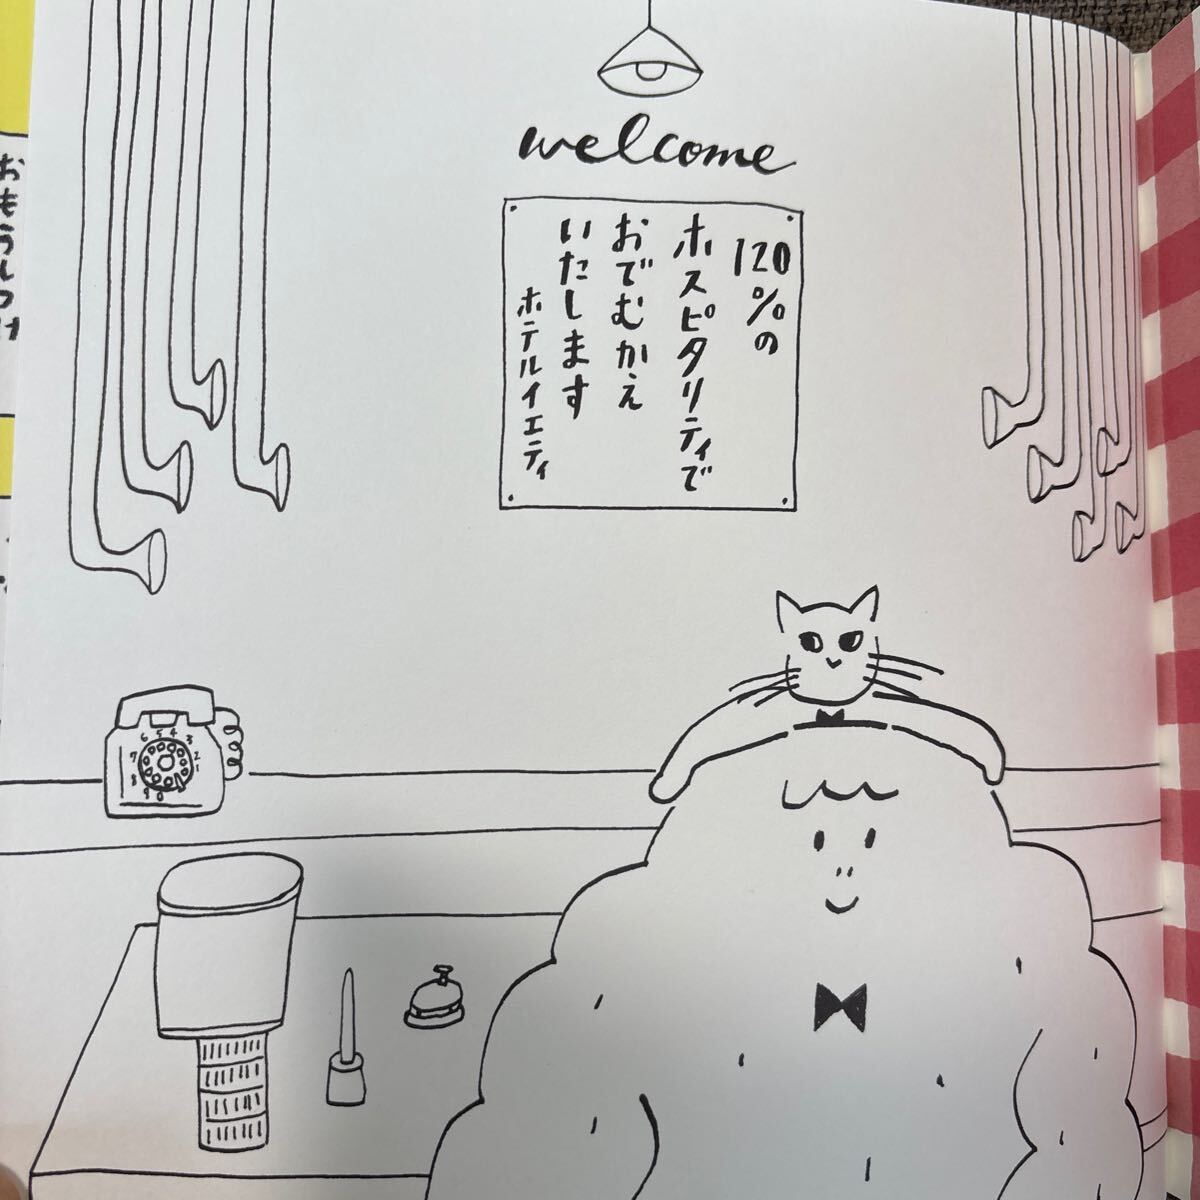 welcome
120%の
ホスピタリティで
おでむかえ
いたします
ホテルイエティ